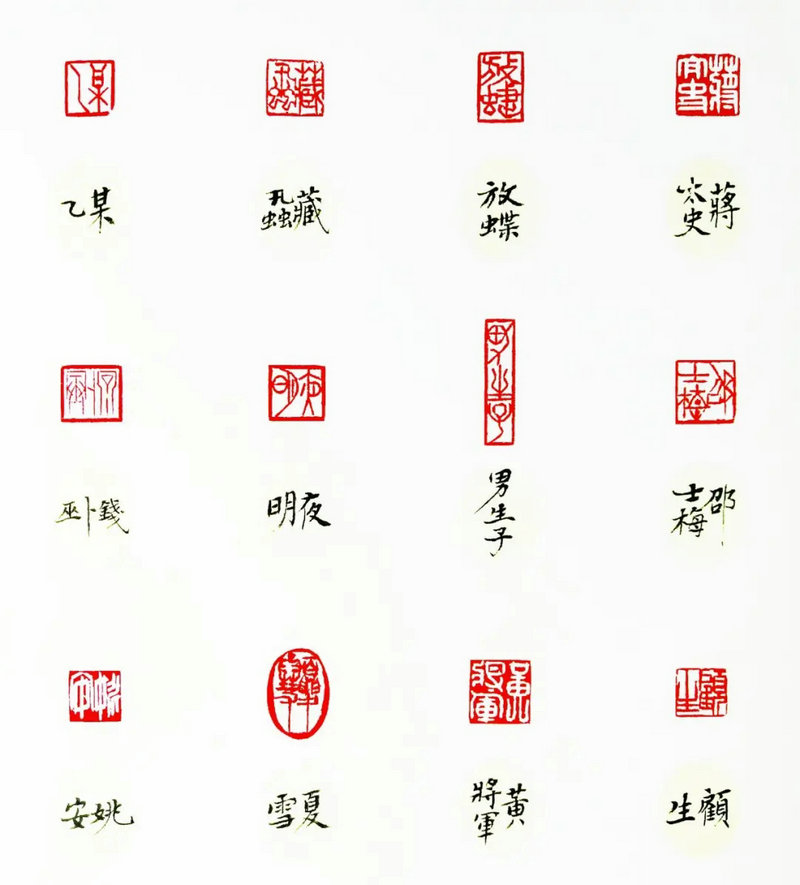 蔣太史
邵士梅
顧生
放蝶
男生子
黃將軍
藏蝨
夜明
夏雪
某乙
錢卜巫
姚安